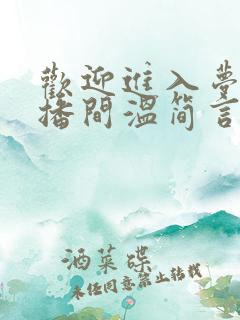 歡迎進入夢
播間溫简言
酒菜碟
未经同意禁止转载